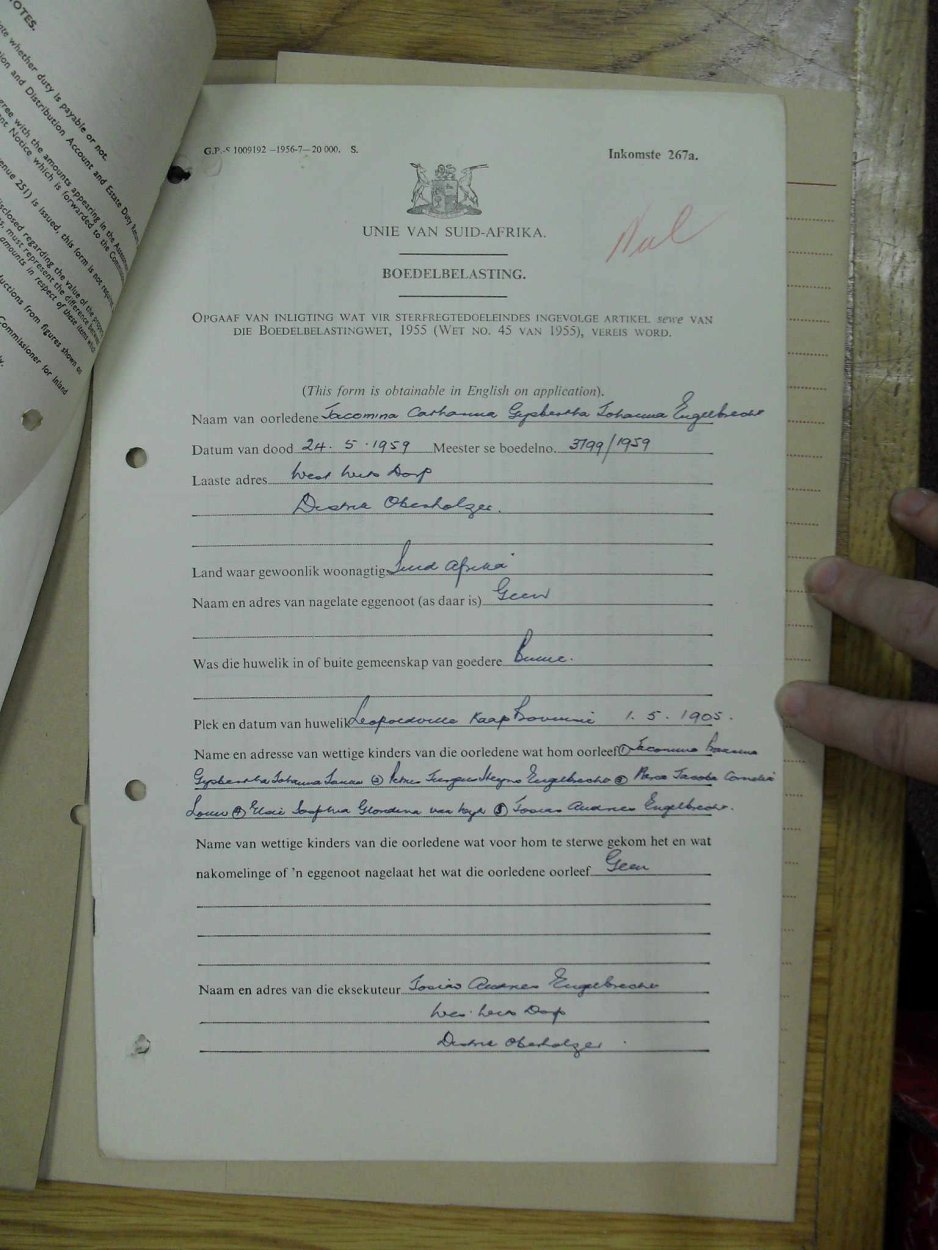 OTES.
ate whether duty is payable or not.
ion and Distribution Account and Estate Duty
gree with the amounts appearing in the
nt Notice which is forwarded to the
venue 251) is issued, this form is not
disclosed regarding the value of the
must represent the difference
amounts in respect of these items
ductions from figures shown
Commissioner for Inland
G.P.-S 1009192 —1956-7—20 000. S.
Inkomste 267a.
Nul
UNIE VAN SUID-AFRIKA.
BOEDELBELASTING.
OPGAAF VAN INLIGTING WAT VIR STERFREGTEDOELEINDES INGEVOLGE ARTIKEL sewe VAN
DIE BOEDELBELASTINGWET, 1955 (WET NO. 45 VAN 1955), VEREIS WORD.
(This form is obtainable in English on application).
Naam van oorledene Jacomina Catharina Gysbertha Johanna Engelbrecht
Datum van dood 24. 5. 1959 Meester se boedelno. 3799/1959
Laaste adres West Wits Dorp
Distrik Oberholzer.
Land waar gewoonlik woonagtig Suid Afrika
Naam en adres van nagelate eggenoot (as daar is) Geen
Was die huwelik in of buite gemeenskap van goedere Binne.
Plek en datum van huwelik Kaap Provinsie 1. 5. 1905.
Name en adresse van wettige kinders van die oorledene wat hom oorleef (1) Jacomina
Gysbertha Johanna (2) Engelbrecht (3) Jacoba Cornelia
Louw (4) Sophia van (5) Tobias Andries Engelbrecht.
Name van wettige kinders van die oorledene wat voor hom te sterwe gekom het en wat
nakomelinge of 'n eggenoot nagelaat het wat die oorledene oorleef Geen
Naam en adres van die eksekuteur Tobias Andries Engelbrecht
Wes. Wits Dorp
Distrik Oberholzer.